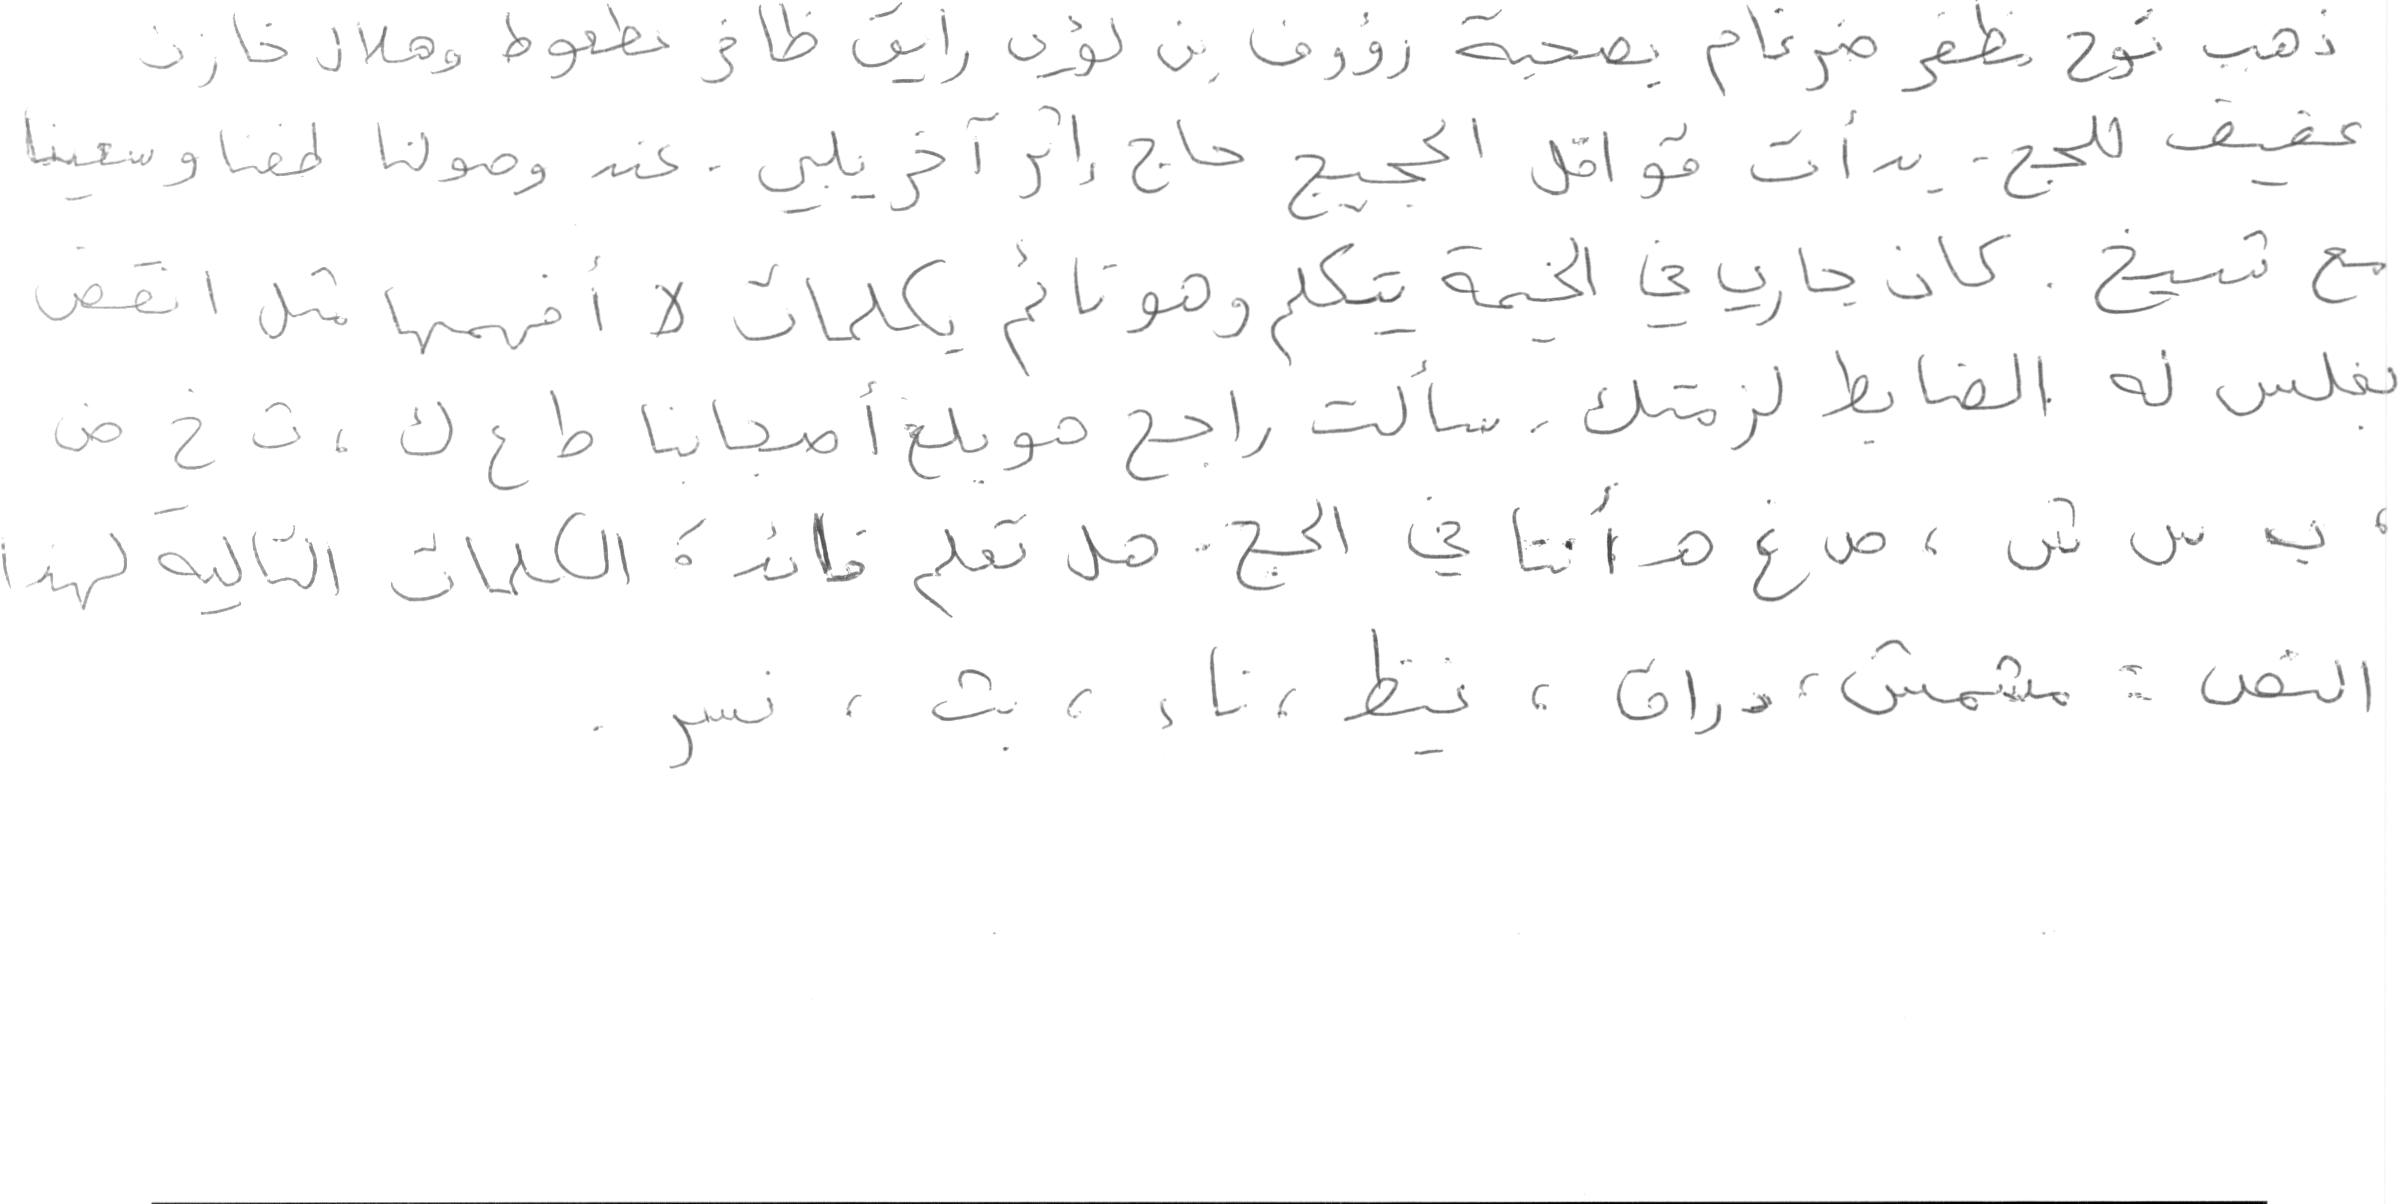 ذهب نوح مظفر ضرغام بصحبة رؤوف بن لؤي رايق ظافر عطعوط وهلال خازن
عفيف للحج. بدأت قوافل الحجيج حاج إثر آخر يلبي. عند وصولنا طفنا وسعينا
مع شيخ. كان جاري في الخيمة يتكلم وهو نائم بكلمات لا أفهمها مثل انقض
بغلس له الضابط لزمتك. سألت راجح هو يلغ أصحابنا ط ع ك ، ت خ ض
، ب س ش ، ص غ هـ أننا في الحج. هل تعلم فائدة الكلمات التالية لهذا
النص : مشمش، دراق ، غيظ ، ناء ، بث ، نسر .